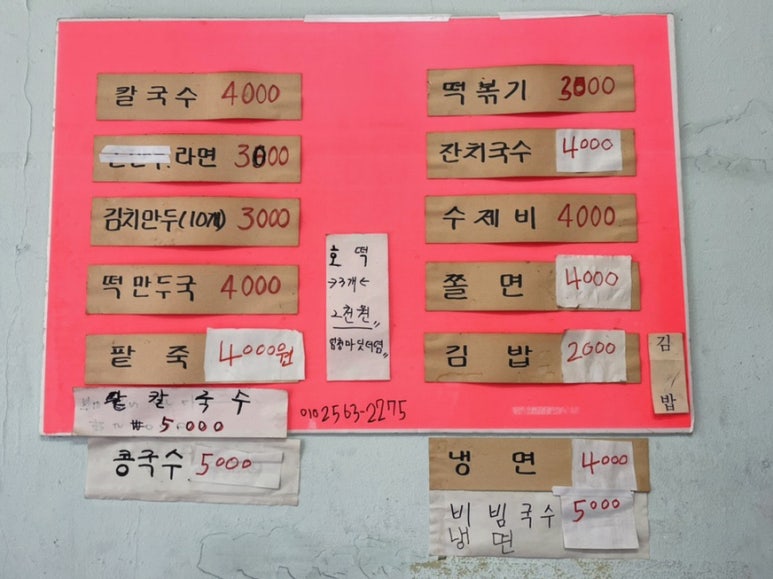 칼국수 4000
라면 3000
김치만두(10개) 3000
떡만두국 4000
팥죽 4000원
팥칼국수
₩5.000
콩국수 5000
호떡
→3개←
2천원〃
010 2563-2275
떡볶기 3000
잔치국수 4000
수제비 4000
쫄면 4000
김밥 2000
김밥
냉면 4000
비빔국수 5000
냉면